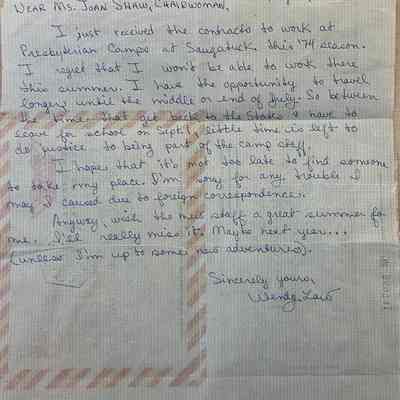 Dear Ms. Joan Shaw, Chairwoman,
I just received the contracts to work at
Presbyterian Camps at Saugatuck this '74 season.
I regret that I won't be able to work there
this summer. I have the opportunity to travel
longer, until the middle or end of July. So between
the time that get back to the States & have to
leave for school on Sept 1, little time is left to
do justice to being part of the camp staff.
I hope that it's not too late to find someone
to take my place. I'm sorry for any trouble I
may caused due to foreign correspondence.
Anyway, wish the new staff a great summer for
me. I'll really miss it. Maybe next year...
(unless I'm up to some new adventures).
Sincerely yours,
Wendy